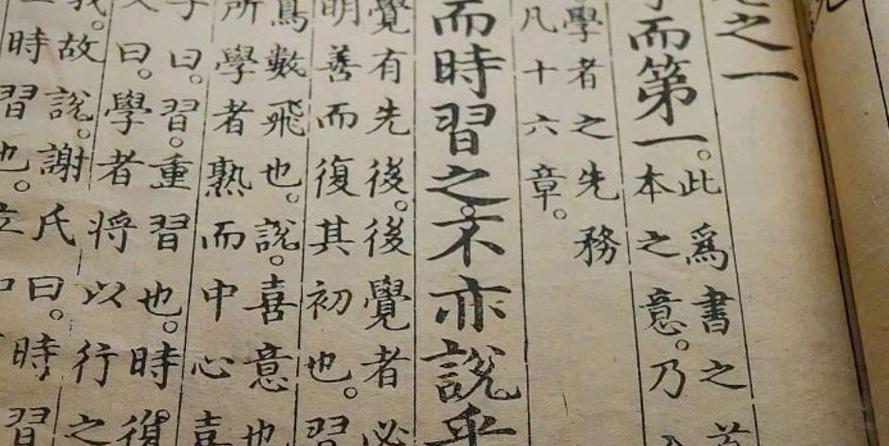 之一
而第一。此爲書之
本之意。乃
學者之先務
凡十六章。
而時習之。不亦說乎
覺有先後。後覺者必
明善而復其初也。習
鳥數飛也。說。喜意也
所學者熟而中心喜
子曰。習。重習也。時復
曰。學者將以行之
我。故說。謝氏曰。時習
時習也。立